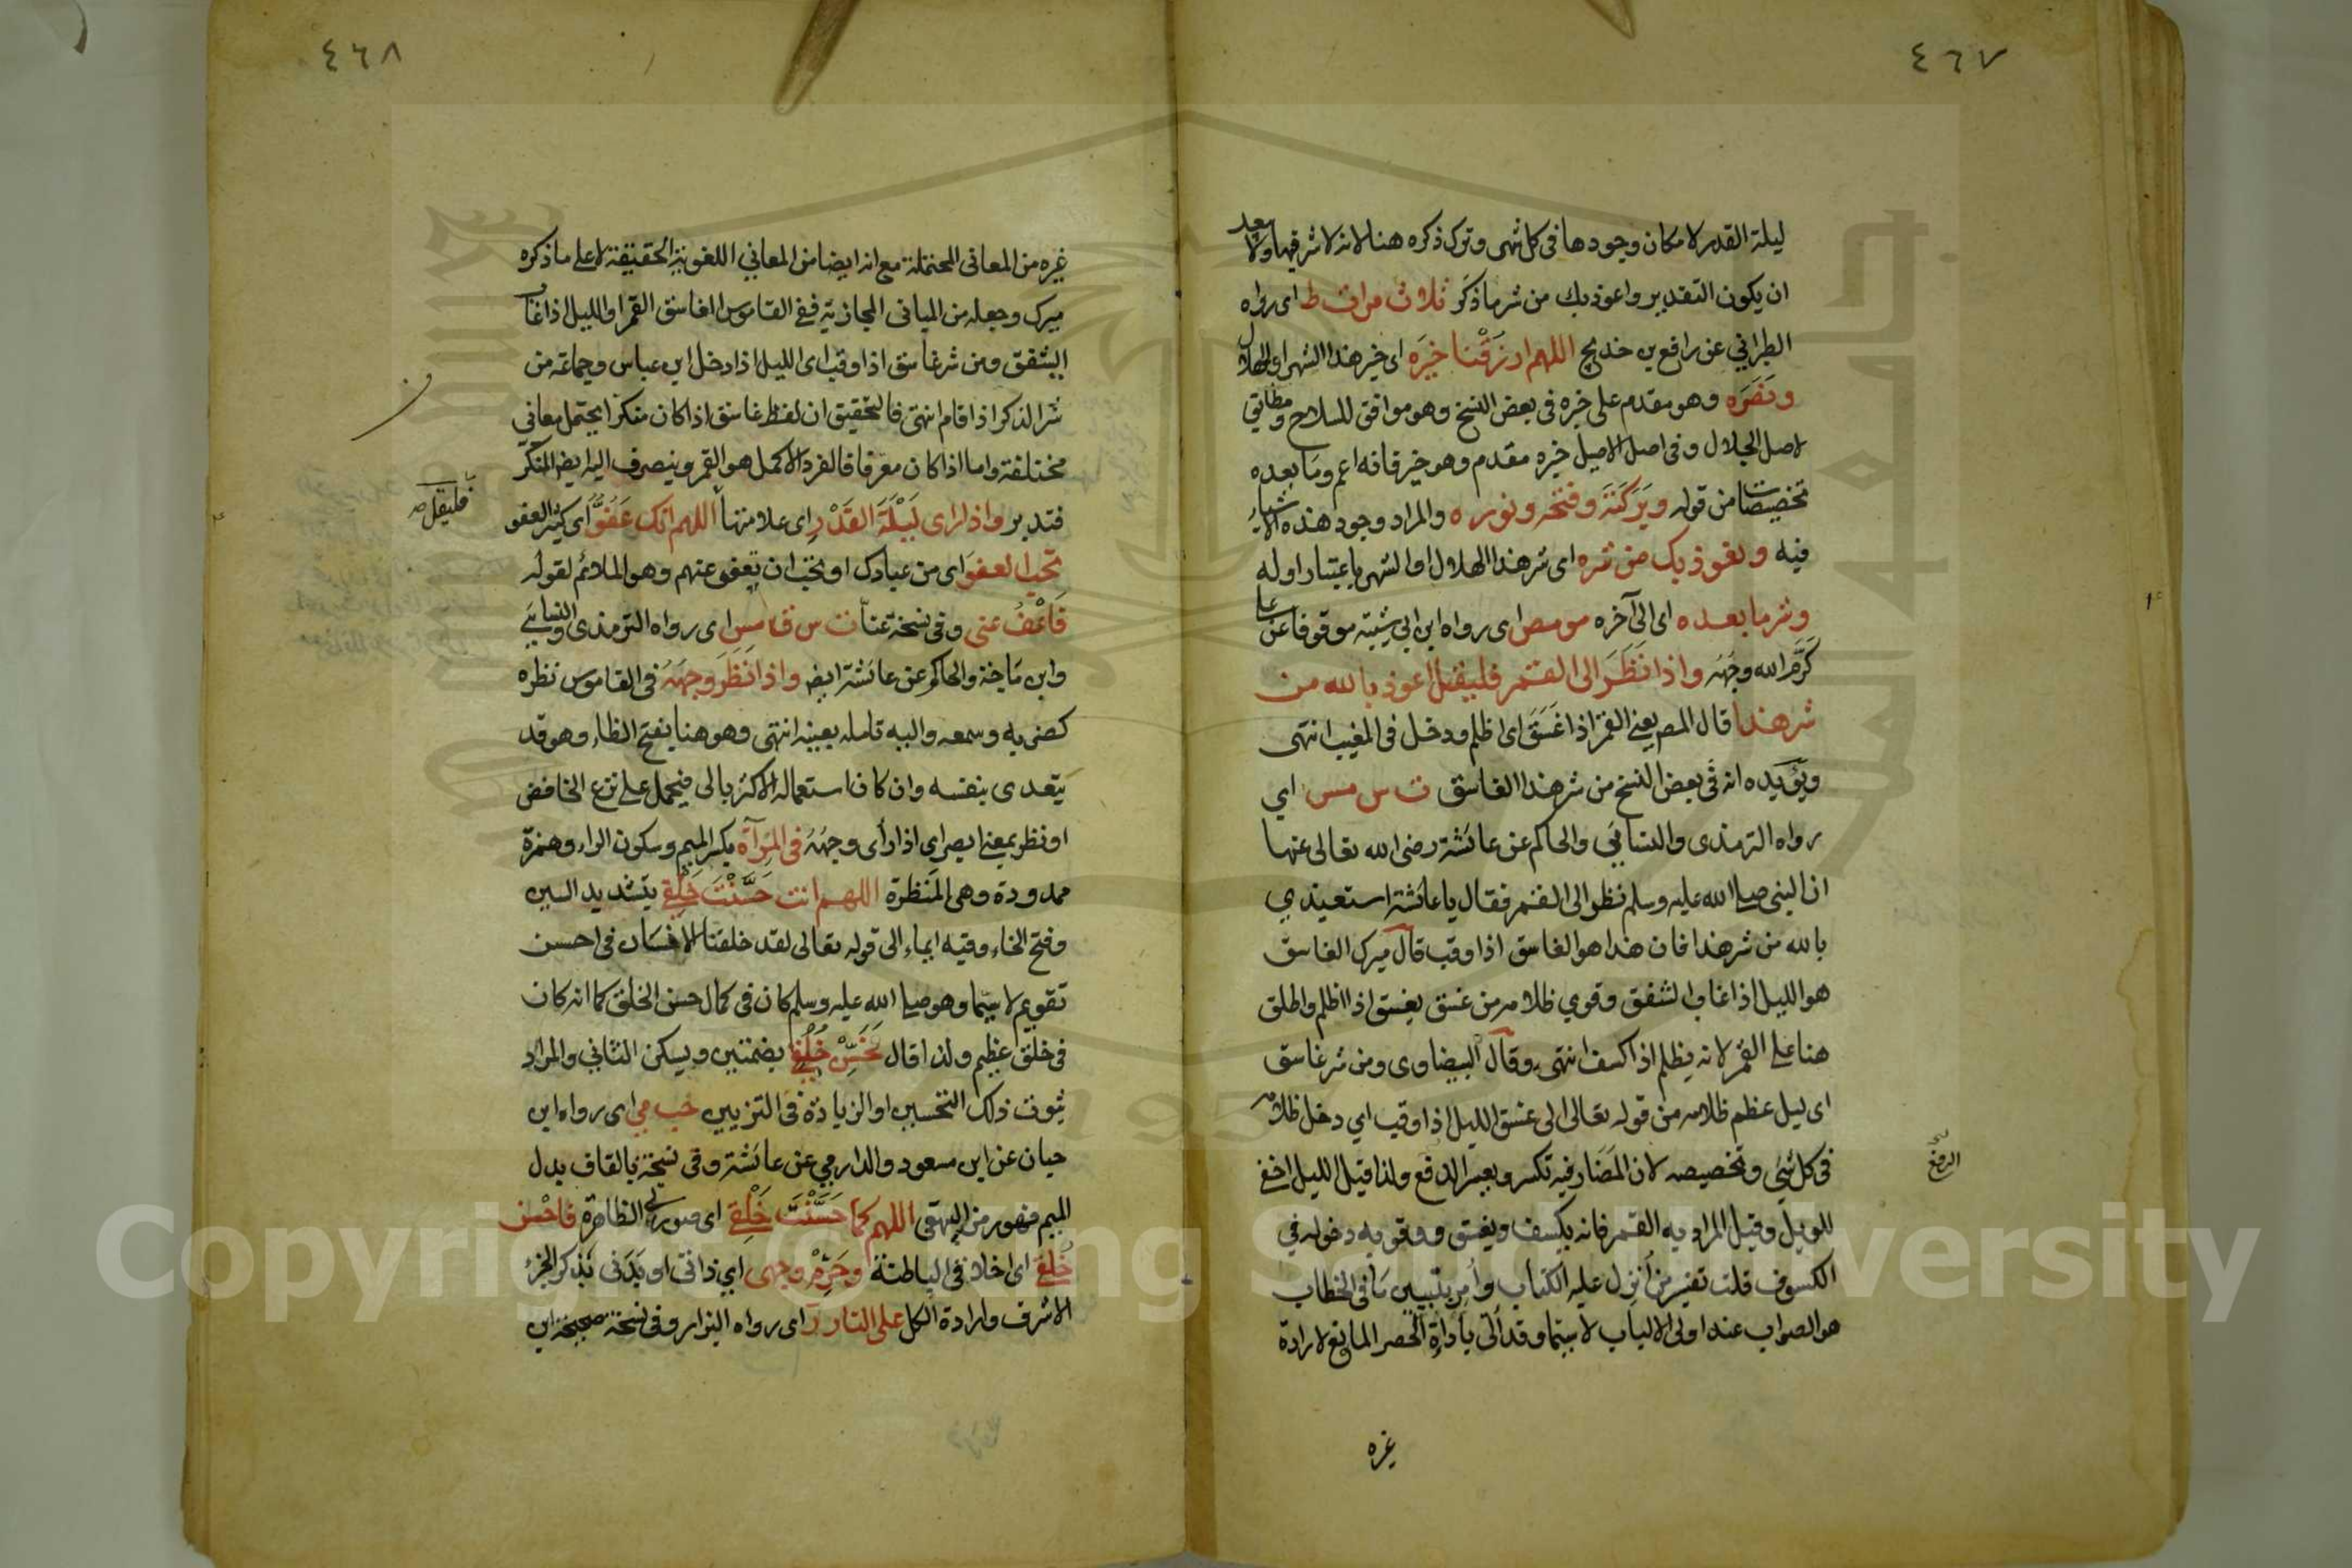 ٤٦٧
ليلة القدر لامكان وجودها فى كل شهر وترك ذكره هنا لانه لا شر فيها ولا يبعد
ان يكون التقدير واعوذ بك من شر ما ذكر ثلاث مرات ط اى رواه
الطبراني عن رافع بن خديج اللهم ارزقنا خيره اى خير هذا الشهر او الهلال
ونصره وهو مقدم على خيره فى بعض النسخ وهو موافق للسلاح ومطابق
لاصل الجلال وفى اصل الاصيل خيره مقدم وهو خير فانه اعم وما بعده
تخصيصات من قوله وبركته وفتحه ونوره والمراد وجود هذه الاشياء
فيه ونعوذ بك من شره اى شر هذا الهلال او الشهر باعتبار اوله
وشر ما بعده اى الى آخره مو مص اى رواه ابن ابي شيبة موقوفا عن على
كرم الله وجهه واذا نظر الى القمر فليقل اعوذ بالله من
شر هذا قال المص يعنى القمر اذا غسق اى اظلم ودخل فى المغيب انتهى
ويؤيده انه فى بعض النسخ من شر هذا الغاسق ت س مس اي
رواه الترمذى والنسائي والحاكم عن عائشة رضى الله تعالى عنها
ان النبى صلى الله عليه وسلم نظر الى القمر فقال يا عائشة استعيذي
بالله من شر هذا فان هذا هو الغاسق اذا وقب قال ميرك الغاسق
هو الليل اذا غاب الشفق وقوي ظلامه من غسق يغسق اذا اظلم واطلق
هنا على القمر لانه يظلم اذا كسف انتهى وقال البيضاوى ومن شر غاسق
اى ليل عظم ظلامه من قوله تعالى الى غسق الليل اذا وقب اي دخل ظلامه
فى كل شئ وتخصيصه لان المضار فيه تكسر ويعسر الدفع ولذا قيل الليل اخفى
للويل وقيل المراد به القمر فانه يكسف ويغسق ووقوبه دخوله في
الكسوف قلت تفسير من أنزل عليه الكتاب وأمر بتبيين ما فى الخطاب
هو الصواب عند اولى الالباب لا سيما وقد أتى بأداة الحصر المانع لارادة
الدفع
غيره
٤٦٨
غيره من المعانى المحتملة مع انه ايضا من المعاني اللغوية الحقيقة لا على ما ذكره
ميرك وجعله من المعانى المجازية ففى القاموس الغاسق القمر او الليل اذا غاب
الشفق ومن شر غاسق اذا وقب اى الليل اذا دخل ابن عباس وجماعة من
شر الذكر اذا قام انتهى فالتحقيق ان لفظ غاسق اذا كان منكرا يحتمل معانى
مختلفة واما اذا كان معرفا فالفرد الاكمل هو القمر وينصرف اليه ايضا المنكر
فتدبر واذا راى ليلة القدر اى علامتها اللهم انك عفو اى كثير العفو
تحب العفو اى من عبادك او تحب ان تعفو عنهم وهو الملائم لقوله
فاعف عنى وفى نسخة عنا ت س ق مس اى رواه الترمذى والنسائي
وابن ماجة والحاكم عن عائشة ايضا واذا نظر وجهه فى القاموس نظره
كضربه وسمعه واليه تامله بعينه انتهى وهو هنا بفتح الظاء وهو قد
يتعدى بنفسه وان كان استعماله الاكثر بالى فيحمل على نزع الخافض
او نظر بمعنى ابصر اى اذا رأى وجهه فى المرآة بكسر الميم وسكون الراء وهمزة
ممدودة وهى المنظرة اللهم انت حسنت خلقى بتشديد السين
وفتح الخاء وفيه ايماء الى قوله تعالى لقد خلقنا الانسان فى احسن
تقويم لا سيما وهو صلى الله عليه وسلم كان فى كمال حسن الخلق كما انه كان
فى خلق عظيم ولذا قال فحسن خلقى بضمتين ويسكن الثانى والمراد
ثبوت ذلك التحسين او الزيادة فى التزيين حب مي اى رواه ابن
حبان عن ابن مسعود والدارمي عن عائشة وفى نسخة بالقاف بدل
الميم فهو رمز البيهقى اللهم كما حسنت خلقى اى صورتى الظاهرة فاحسن
خلقى اى اخلاقى الباطنة وحرم وجهى اي ذاتى او بدنى بذكر الجزء
الاشرف وارادة الكل على النار ر اى رواه البزار وفى نسخة صحيحة ابن
فليقل صح
Copyright © King Saud University